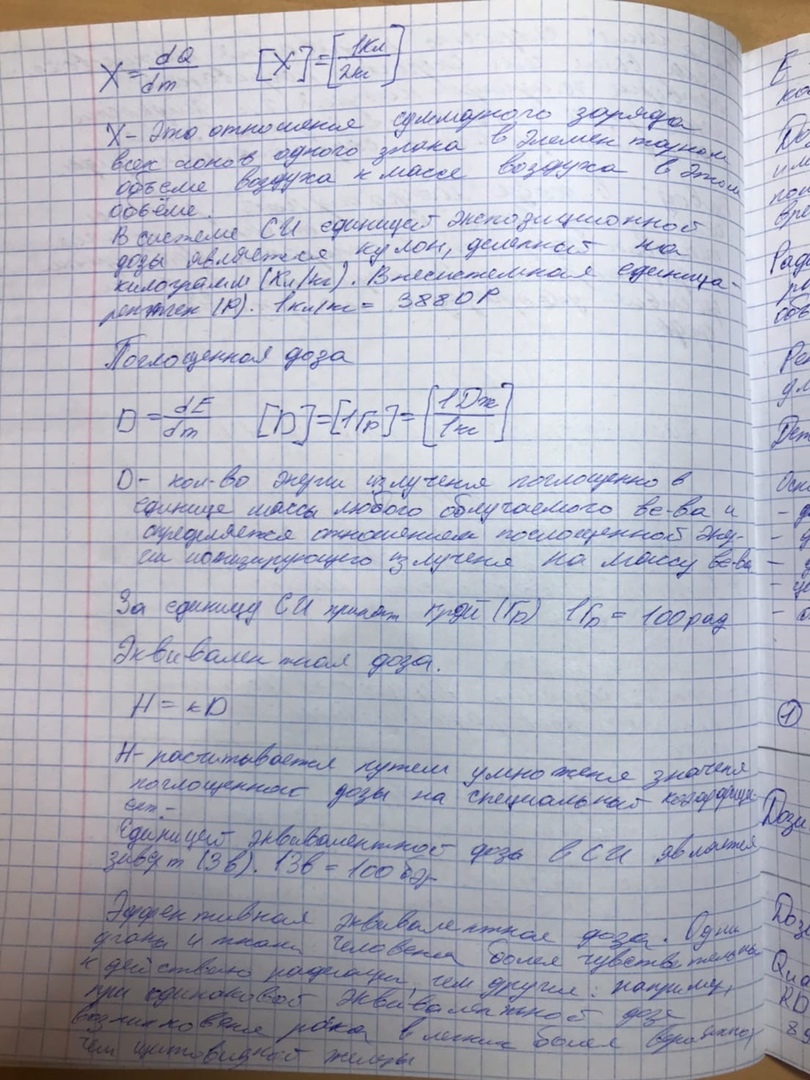 X = dQ/dm [X] = [1Кл/2кг]
X - Это отношение суммарного заряда
всех ионов одного знака в элементарном
объеме воздуха к массе воздуха в этом
объёме.
В системе СИ единицей экспозиционной
дозы является кулон, деленный на
килограмм (Кл/кг). Внесистемная единица -
рентген (Р). 1кл/кг = 3880Р
Поглощенная доза
D = dE/dm [D] = [1Гр] = [1Дж/1кг]
D - кол-во энергии излученя поглощенно в
единице массы любого облучаемого ве-ва и
определяется отношением поглощенной энер-
гии ионизирующего излученя на массу ве-ва
За единицу СИ принят грэй (Гр) 1Гр = 100 рад
Эквивалентная доза.
H = kD
H - расчитывается путем умноженя значеня
поглощенного дозы на специальный коэффици-
ент. -
Единицей эквивалентной дозы в СИ является
зиверт (Зв). 1Зв = 100 бэр
Эффективная эквивалентная доза. Одни
органы и ткани человека более чувствительны
к действию радиации, чем другие: например,
при одинаковой эквивалентной дозе
возникновеня рака в легких более вероятно,
чем щитовидной железы
①